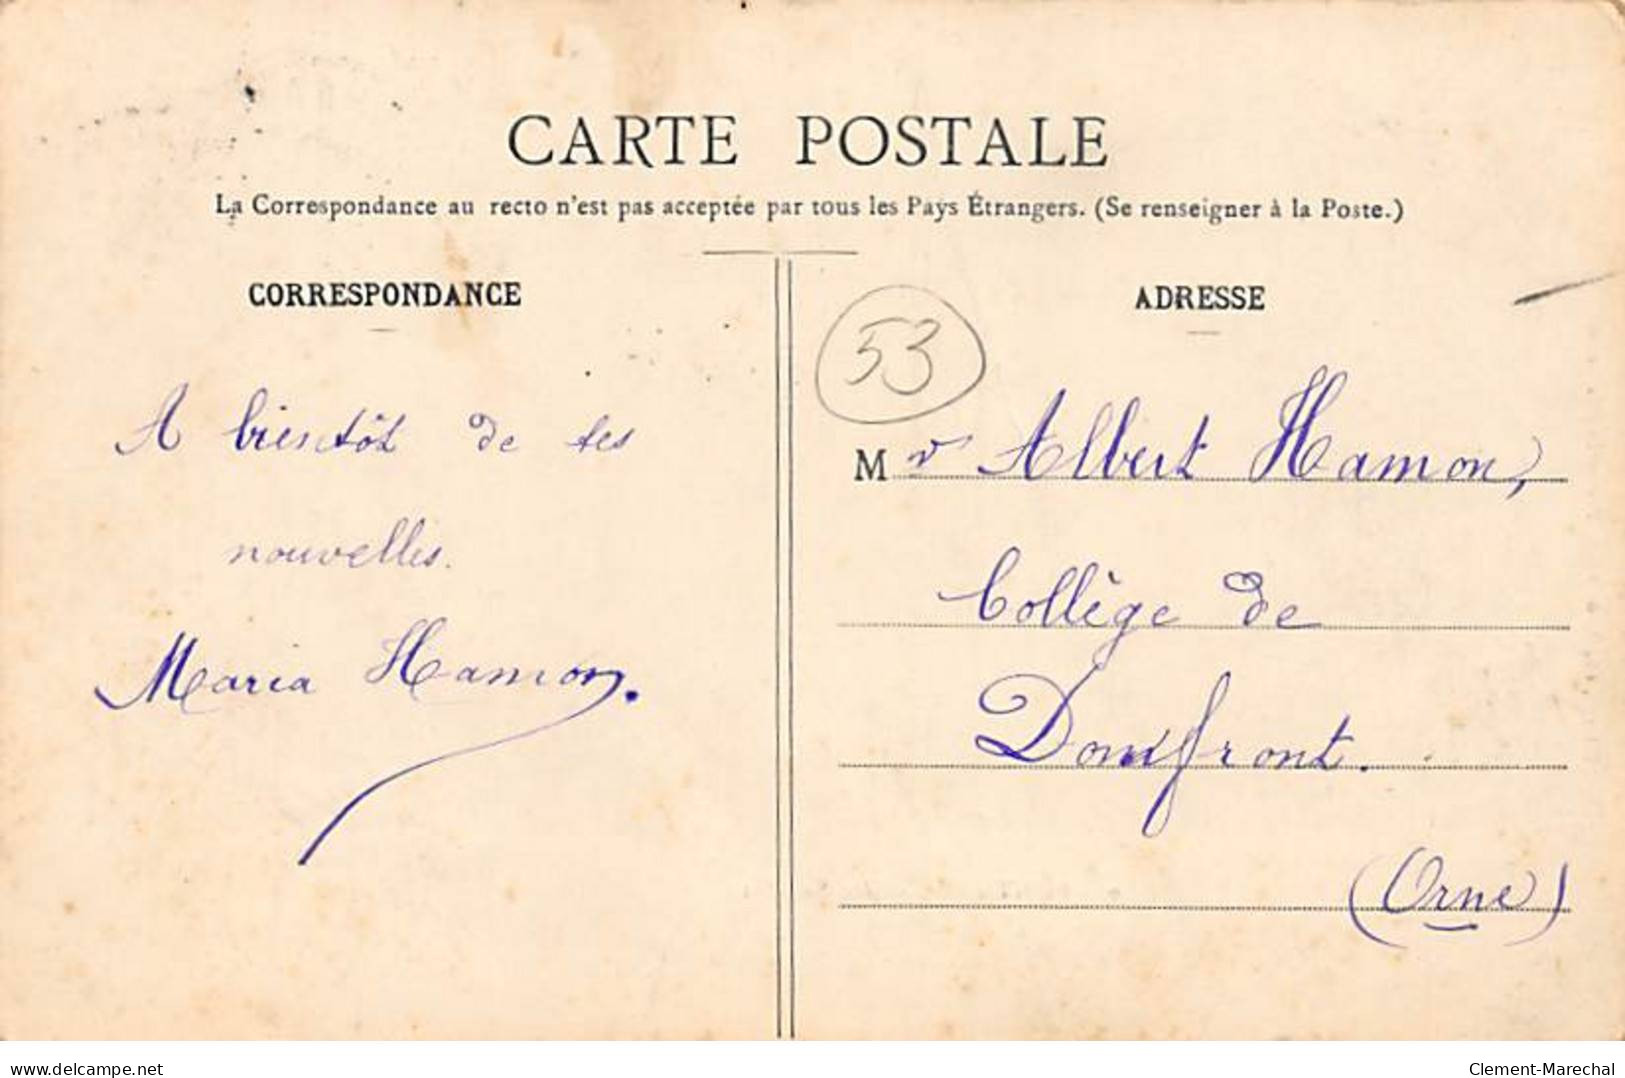 CARTE POSTALE
La Correspondance au recto n'est pas acceptée par tous les Pays Étrangers. (Se renseigner à la Poste.)
CORRESPONDANCE
A bientôt de tes
nouvelles.
Maria Hamon.
ADRESSE
53
Mr Albert Hamon,
Collège de
Domfront.
(Orne)
delcampe.net
Clement-Marechal